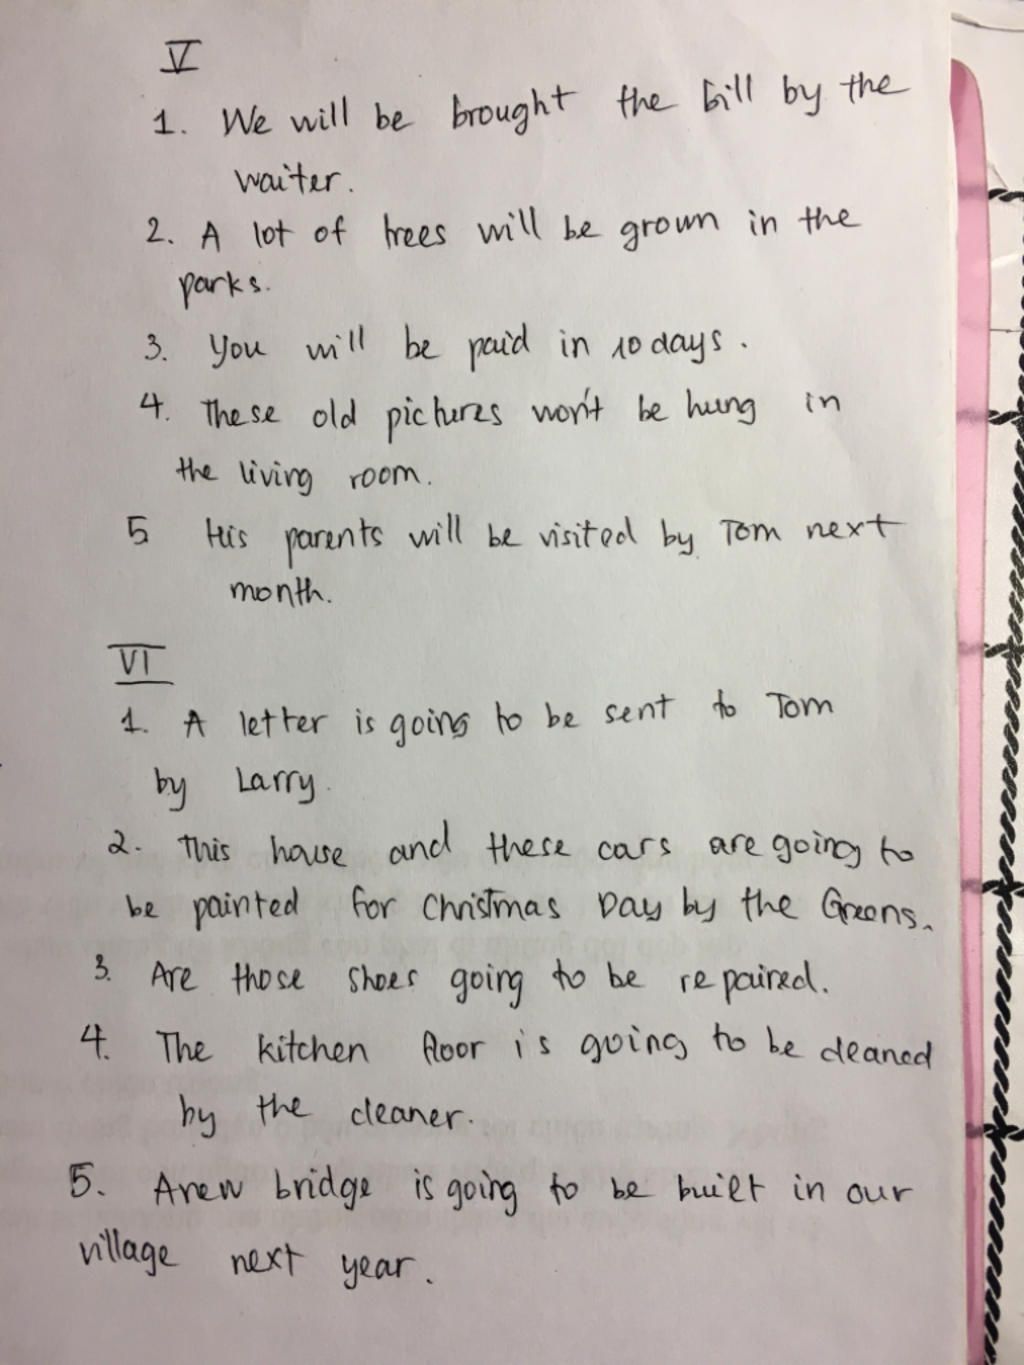 V
1. We will be brought the bill by the
waiter.
2. A lot of trees will be grown in the
parks.
3. You will be paid in 10 days.
4. These old pictures won't be hung in
the living room.
5 His parents will be visited by Tom next
month.
VI
1. A letter is going to be sent to Tom
by Larry.
2. This house and these cars are going to
be painted for Christmas Day by the Greens.
3. Are those shoes going to be repaired.
4. The kitchen floor is going to be cleaned
by the cleaner.
5. A new bridge is going to be built in our
village next year.